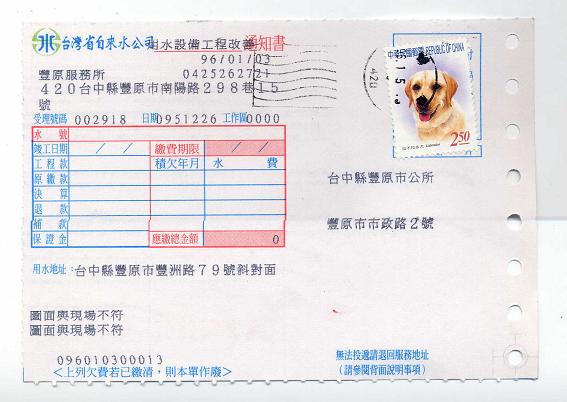 台灣省自來水公司 用水設備工程改善 通知書
96/01/03
豐原服務所 0425262721
420台中縣豐原市南陽路298巷15
號
受理號碼 002918 日期0951226 工作區0000
水 號
竣工日期 / / 繳費期限 / /
工程款 積欠年月 水 費
原繳款
決 算
退 款
補 款
保證金 應繳總金額 0
用水地址: 台中縣豐原市豐洲路79號斜對面
圖面與現場不符
圖面與現場不符
096010300013
<上列欠費若已繳清,則本單作廢>
REPUBLIC OF CHINA
Labrador
2.50
420
台中縣豐原市公所
豐原市市政路2號
無法投遞請退回服務地址
(請參閱背面說明事項)